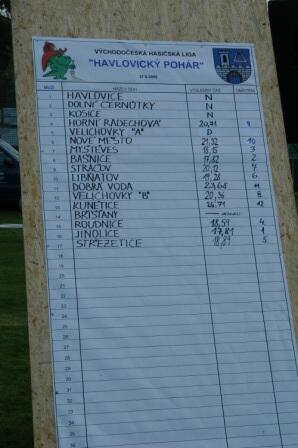 VÝCHODOČESKÁ HASIČSKÁ LIGA
"HAVLOVICKÝ POHÁR"
MUŽI NÁZEV SDH VÝSLEDNÝ ČAS UMÍSTĚNÍ
1 HAVLOVICE N
2 DOLNÍ ČERNŮTKY N
3 KOSICE N
4 HORNÍ RADECHOVÁ 20,71 9
5 VELICHOVKY "A" D
6 NOVÉ MĚSTO 21,32 10
7 MYŠTĚVES 18,15 3
8 BAŠNICE 17,82 2
9 STRAČOV 20,12 7
10 LIBŇATOV 19,28 6
11 DOBRÁ VODA 23,68 11
12 VELICHOVKY "B" 20,36 8
13 KUNĚTICE 26,71 12
14 BŘÍŠŤANY
15 ROUDNICE 18,59 4
16 JINOLICE 17,81 1
17 STŘEZETICE 18,89 5
18
19
20
21
22
23
24
25
26
27
28
29
30
31
32
33
34
35
36